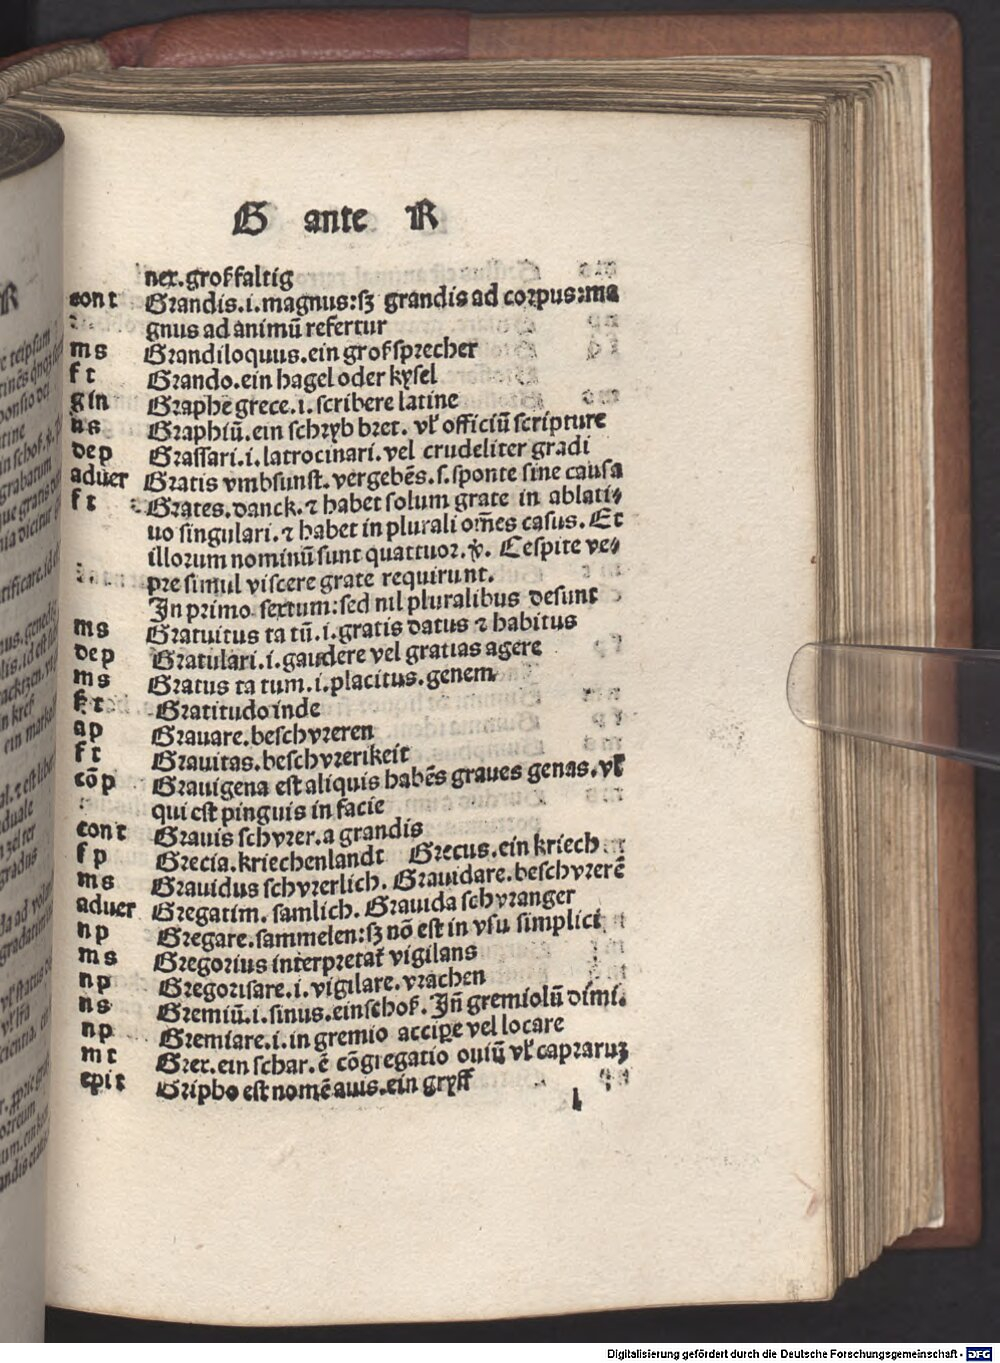 G ante R
ner.großfaltig
cont Grandis.i.magnus:sꝫ grandis ad corpus:ma
gnus ad animū refertur
ms Grandiloquus.ein großsprecher
ft Grando.ein hagel oder kysel
gin Graphe grece.i.scribere latine
ns Graphiū.ein schryb bret. vł officiū scripture
dep Grassari.i.latrocinari.vel crudeliter gradi
aduer Gratis vmbsunst.vergebēs.s.sponte sine causa
ft Grates.danck.⁊ habet solum grate in ablati⸗
uo singulari.⁊ habet in plurali oēs casus. Et
illorum nominū sunt quattuor.ꝟ. Cespite ve⸗
pre simul viscere grate requirunt.
In primo sextum:sed nil pluralibus desunt
ms Gratuitus ta tū.i.gratis datus ⁊ habitus
dep Gratulari.i.gaudere vel gratias agere
ms Gratus ta tum.i.placitus.genem
ft Gratitudo inde
ap Grauare.beschvreren
ft Grauitas.beschvrerikeit
cōp Grauigena est aliquis habēs graues genas.vł
qui est pinguis in facie
cont Grauis schvrer.a grandis
fp Grecia.kriechenlandt Grecus.ein kriech
ms Grauidus schvrerlich. Grauidare.beschvrerē
aduer Gregatim. samlich. Grauida schvranger
np Gregare.sammelen:sꝫ nō est in vsu simplici
ms Gregorius interpretat vigilans
np Gregorisare.i.vigilare.vrachen
ns Gremiū.i.sinus.einschoß. Jn̄ gremiolū dimi.
np Gremiare.i.in gremio accipe vel locare
mt Grex.ein schar.ē cōgregatio ouiū vł capraruꝫ
epit Gripho est nomē auis.ein gryff
l
Digitalisierung gefördert durch die Deutsche Forschungsgemeinschaft - DFG